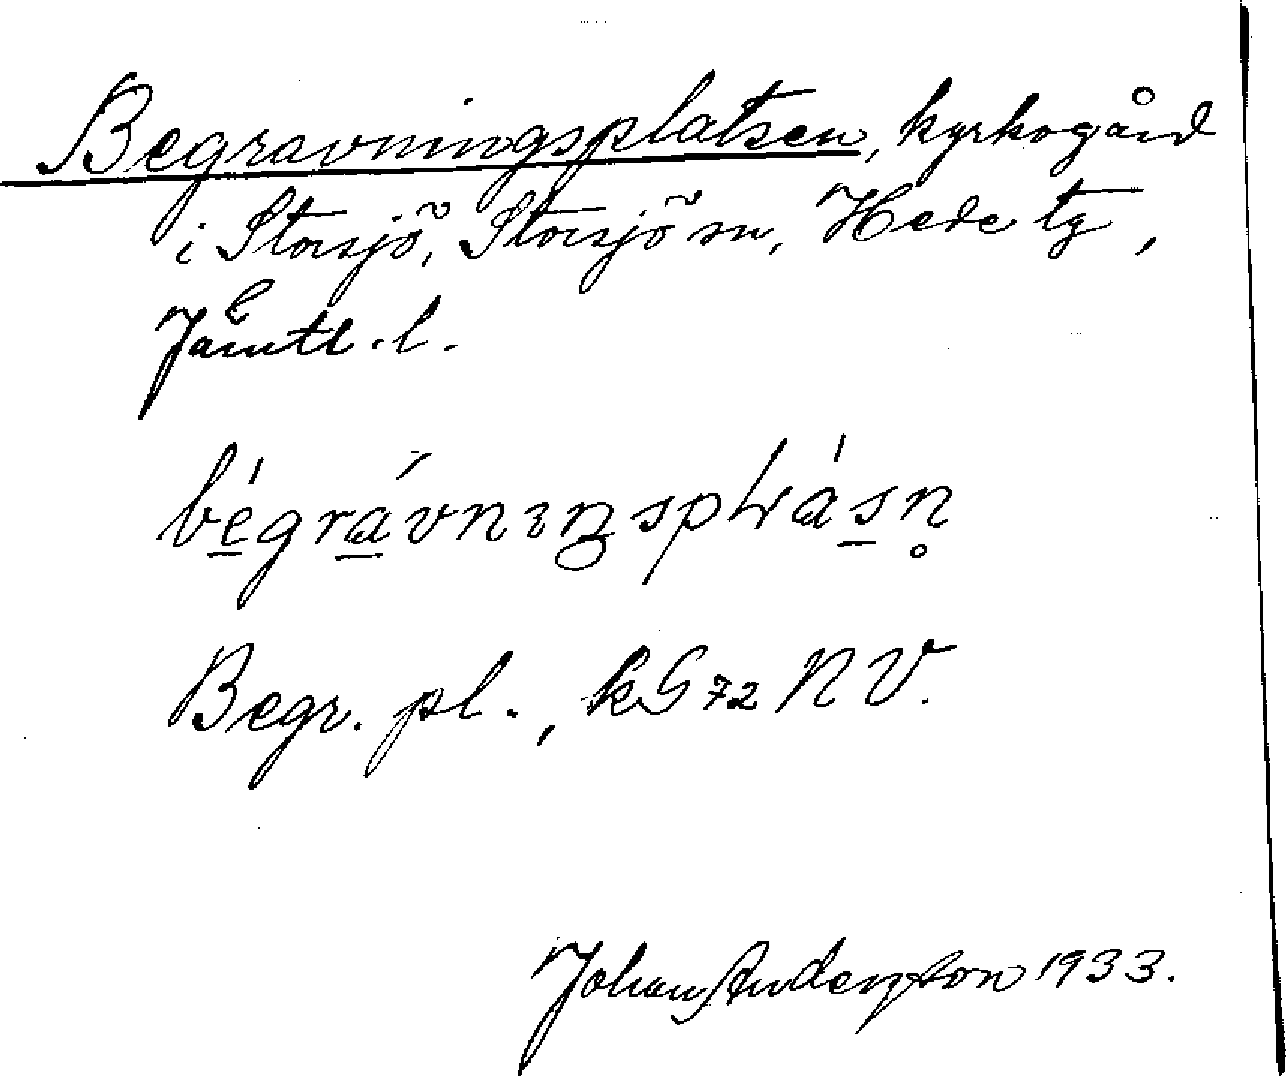 Begravningsplatsen, kyrkogård
i Storsjö, Storsjö sn, Hede tg,
Jämtl. l.
Begr. pl., kG72 NV.
Johan Anderson 1933.